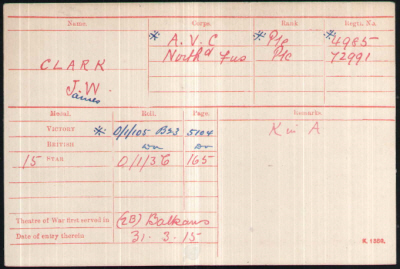 Name. Corps. Rank Regtl. No.
* A. V. C * Pte * 4985
CLARK North'd Fus Pte 72991
J.W.
James
Medal. Roll. Page. Remarks.
VICTORY *: 0/1/105 B23 5104 K in A
BRITISH do do
15 STAR 0/1/3 C 165
Theatre of War first served in (2B) Balkans
Date of entry therein 31. 3. 15
K. 1380.